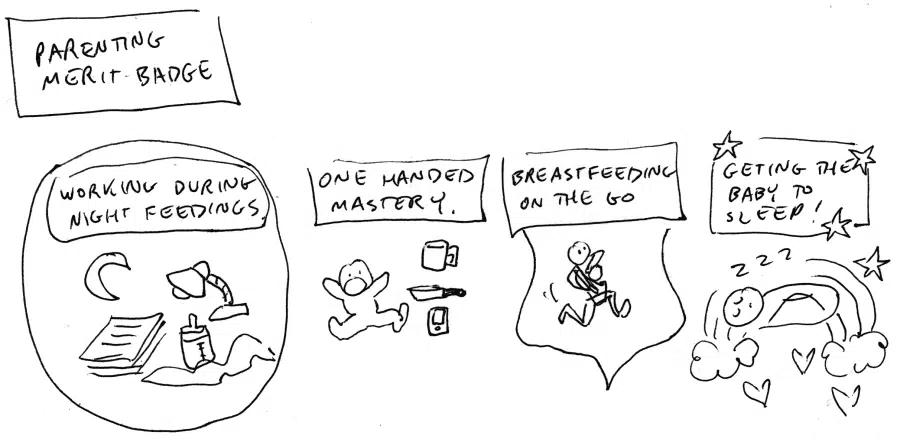 PARENTING
MERIT BADGE
WORKING DURING
NIGHT FEEDINGS.
ONE HANDED
MASTERY.
BREASTFEEDING
ON THE GO
GETING THE
BABY TO
SLEEP!
Z Z Z